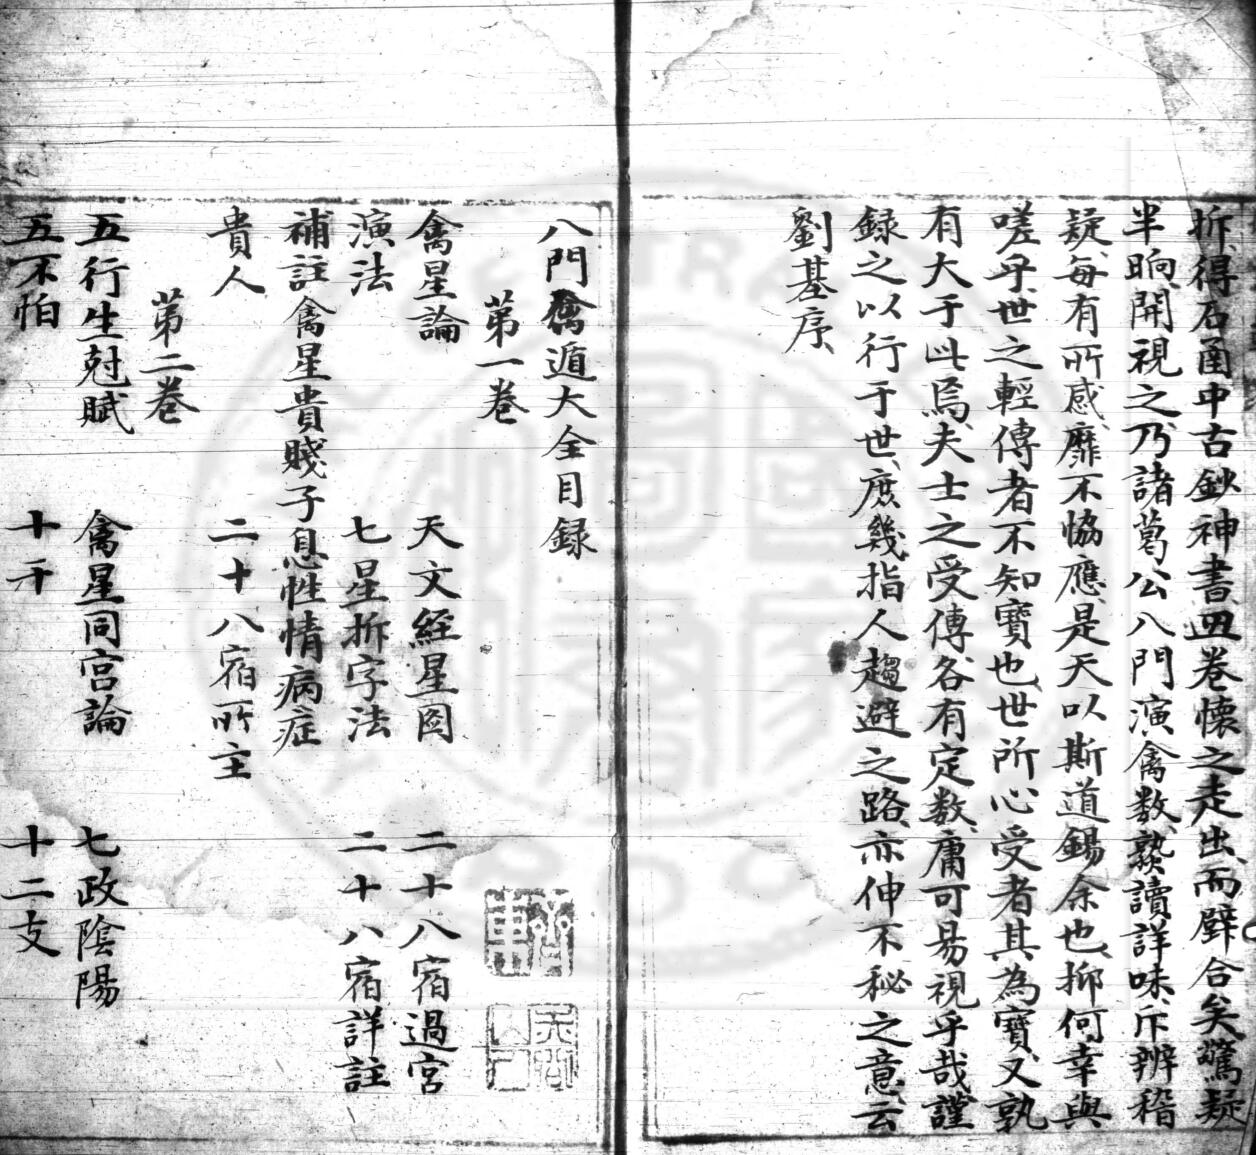 拆、得石凾中古鈔神書四卷懷之走出、而壁合矣驚疑
半晌、開視之、乃諸葛公八門演禽数、熟讀詳味、斥辨稽
疑、每有所感、靡不恊應、是天以斯道錫余也、抑何幸與
嗟乎、世之輕傳者不知寶也、世所心受者其為寶、又孰
有大于此焉、夫士之受傳各有定数、庸可易視乎哉、謹
録之以行于世、庶幾指人趨避之路、亦伸不秘之意、云
劉基序、
八門禽遁大全目録
第一卷
禽星論 天文經星圖 二十八宿過宮
演法 七星拆字法 二十八宿詳註
補註禽星貴賤子息性情病症
貴人 二十八宿所主
第二卷
五行生尅賦 禽星同宮論 七政陰陽
五不怕 十干 十二支